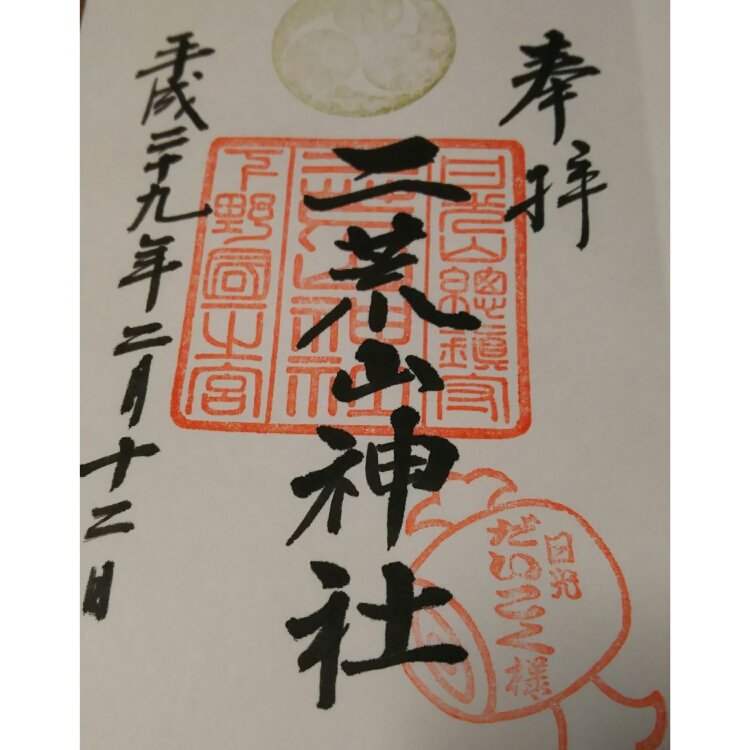 奉拝
日光山総鎮守
二荒山神社
二荒山神社
下野國一之宮
平成二十九年二月十二日
日光
だいこく様